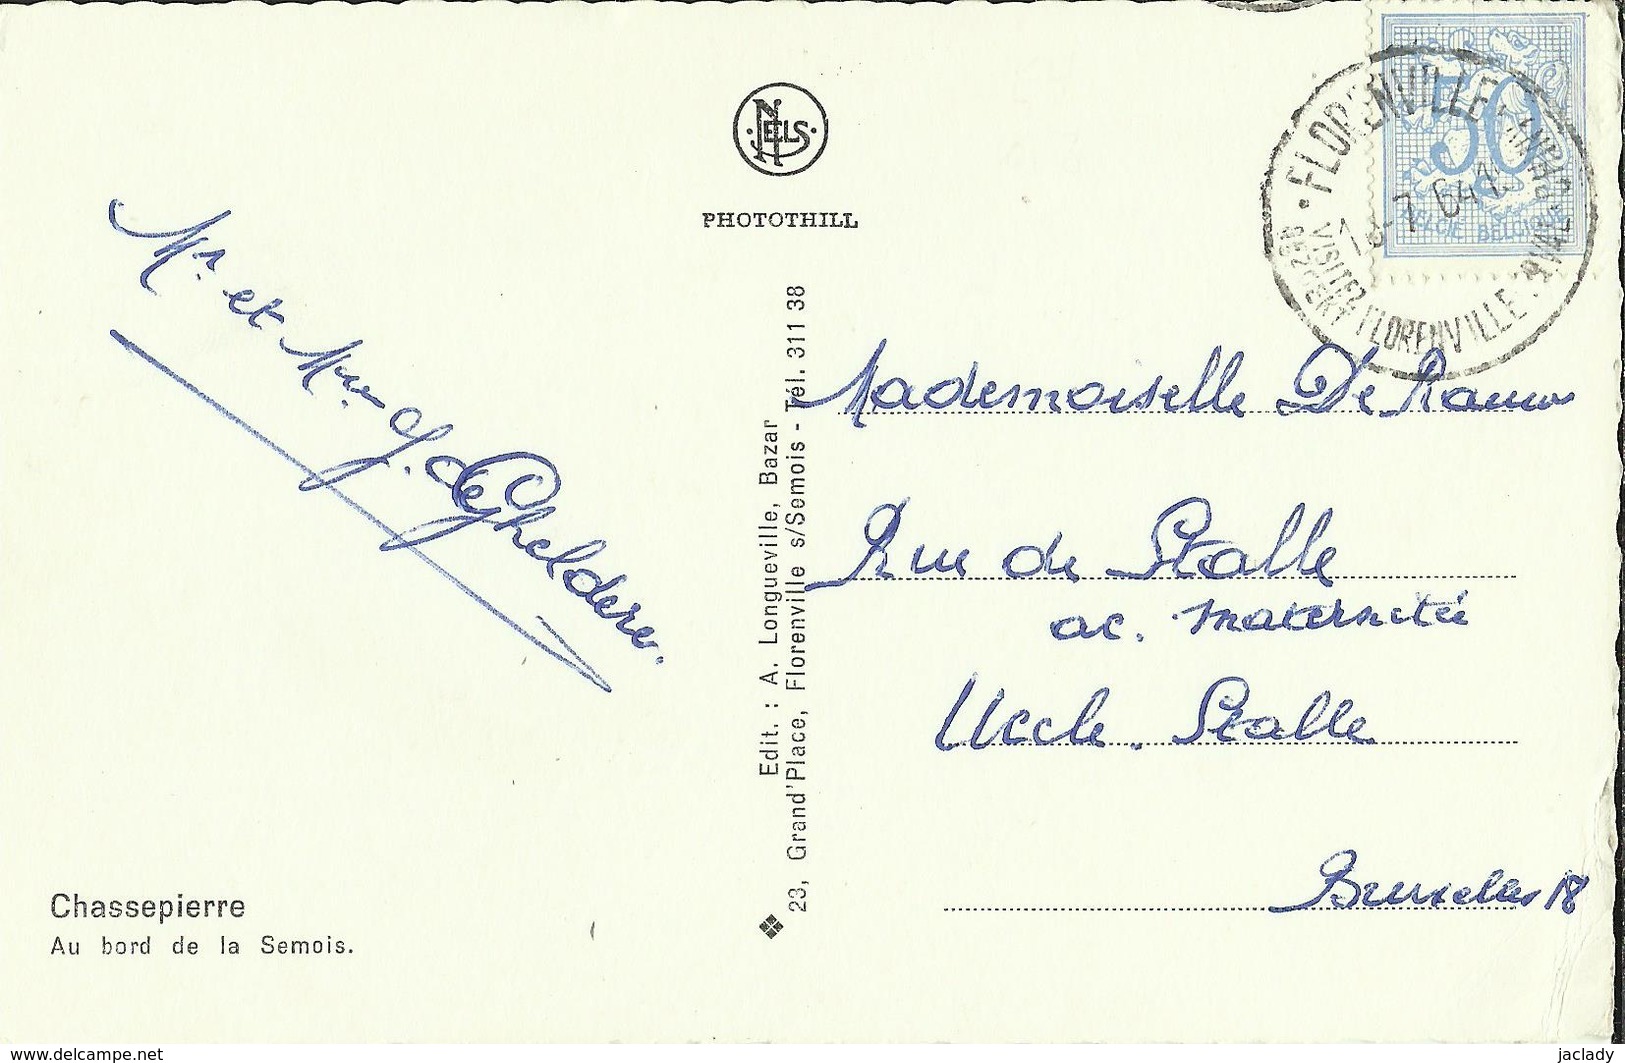 NELS
PHOTOTHILL
50
BELGIE BELGIQUE
FLORENVILLE
-7 64
VISITEZ FLORENVILLE
BEZOEKT
Mr. et Mme J. de Ghelderev.
Mademoiselle De
Rue de Stalle
ac. maternité
Uccle. Stalle
Bruxelles 18
Edit. : A. Longueville, Bazar
23, Grand'Place, Florenville s/Semois - Tél. 311 38
Chassepierre
Au bord de la Semois.
www.delcampe.net
jaclady